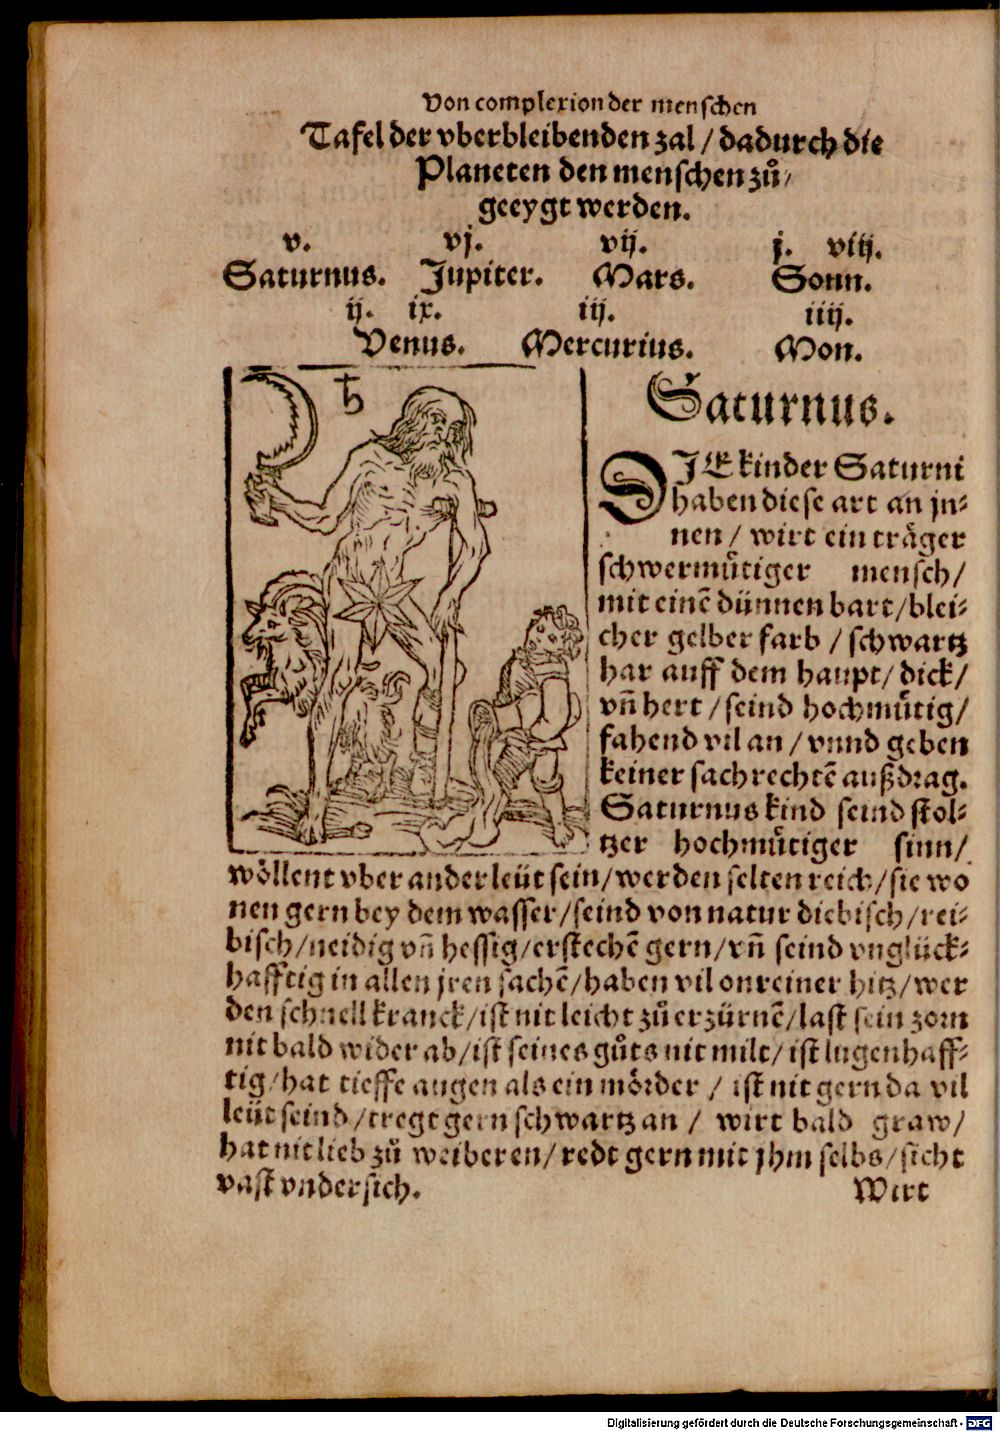 Von complexion der menschen
Tafel der vberbleibenden zal / dadurch die
Planeten den menschen zuͦ/
geeygt werden.
v. vj. vij. j. viij.
Saturnus. Jupiter. Mars. Sonn.
ij. ix. iij. iiij.
Venus. Mercurius. Mon.
♄
Saturnus.
DJE kinder Saturni
haben diese art an jn⸗
nen / wirt ein träger
schwermuͤtiger mensch/
mit einē dünnen bart/blei⸗
cher gelber farb / schwartz
har auff dem haupt/ dick/
vñ hert / seind hochmuͤtig/
fahend vil an / vnnd geben
keiner sach rechtē außdrag.
Saturnus kind seind stol⸗
tzer hochmuͤtiger sinn/
wöllent vber ander leüt sein/werden selten reich/sie wo
nen gern bey dem wasser/seind von natur diebisch/rei⸗
bisch/neidig vñ hessig/erstechē gern/vñ seind vnglück⸗
hafftig in allen jren sachē/haben vil onreiner hitz/wer
den schnell kranck/ist nit leicht zuͦ erzürnē/last sein zorn
nit bald wider ab/ist seines guͦts nit milt/ist lugenhaff⸗
tig/hat tieffe augen als ein mörder / ist nit gern da vil
leüt seind/tregt gern schwartz an / wirt bald graw/
hat nit lieb zuͦ weiberen/redt gern mit jhm selbs/sicht
vast vndersich. Wirt
Digitalisierung gefördert durch die Deutsche Forschungsgemeinschaft - DFG